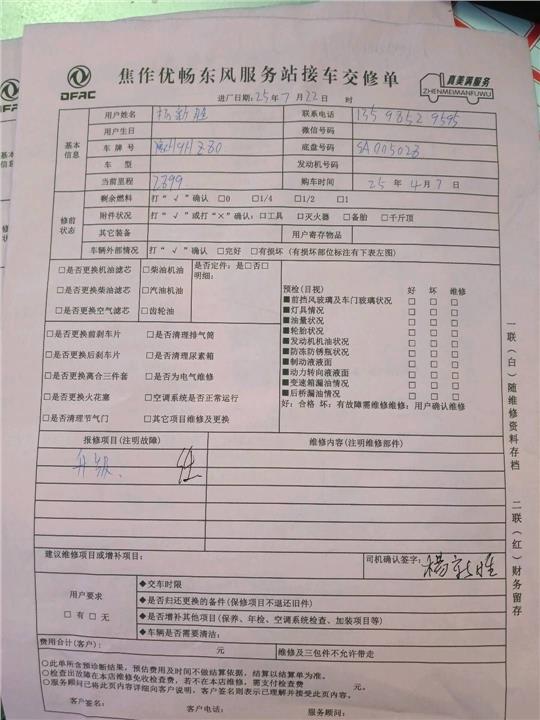 DFAC
焦作优畅东风服务站接车交修单
真美满服务
ZHENMEIMANFUWU
进厂日期:25年7月22日 时
基本信息
用户姓名 杨新胜 联系电话 13598529595
用户生日 微信号码
车 牌 号 底盘号码 SA005023
车 型 发动机号码
当前里程 7899 购车时间 25 年 4 月 7 日
修前状态
剩余燃料 打“√”确认 □0 □1/4 □1/2 □1
附件状况 打“√”或打“×”确认:□工具 □灭火器 □备胎 □千斤顶
其它装备 用户寄存物品
车辆外部情况 打“√”确认 □完好 □有损坏(有损坏部位标注有下表左图)
□是否更换机油滤芯 □柴油机油 是否定件:是□否□
明细:
□是否更换柴油滤芯 □汽油机油
□是否更换空气滤芯 □齿轮油
□是否更换前刹车片 □是否清理排气筒
□是否更换后刹车片 □是否清理尿素箱
□是否更换离合三件套 □是否为电气维修
□是否更换火花塞 □空调系统是否正常运行
□是否清理节气门 □其它项目维修及更换
预检(目视) 好 坏 维修
■前挡风玻璃及车门玻璃状况 □ □ □
■灯具情况 □ □ □
■油量状况 □ □ □
■轮胎状况 □ □ □
■发动机机油状况 □ □ □
■防冻防锈瓶状况 □ □ □
■制动液液面 □ □ □
■动力转向液液面 □ □ □
■变速箱漏油情况 □ □ □
■后桥漏油情况 □ □ □
好:合格 坏:有故障需维修维修:用户确认维修
报修项目(注明故障) 维修内容(注明维修部件)
升级
建议维修项目或增补项目: 司机确认签字: 杨新胜
用户要求
□有 □无
◆交车时限
◆是否归还更换的备件(保修项目不退还旧件)
◆是否增补其他项目(保养、年检、空调系统检查、加装项目等)
◆车辆是否需要清洁:
费用合计(客户): 元 维修及三包件不允许带走
○此单所含预诊断结果,预估费用及时间不做结算依据,结算以结算单为准。
○检查出故障在本店维修免收检查费,若不在本店维修,需支付检查费 元。
○服务顾问已将此页内容详细向客户说明,客户签名则表示已理解并接受此页内容。
客户签名: 客户电话: 服务顾问:
一联(白)随维修资料存档
二联(红)财务留存
基本信息